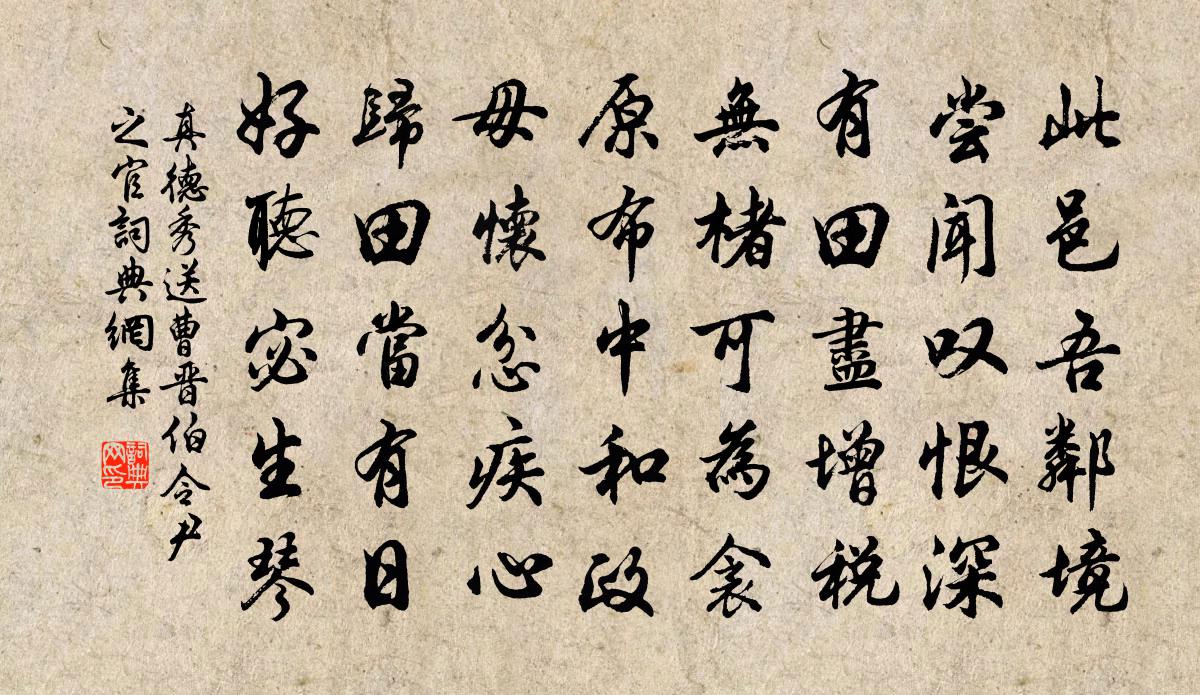 此邑吾鄰境
尝聞叹恨深
有田盡增税
無楮可為衾
原布中和政
毋懷忿疾心
歸田當有日
好聽宓生琴
真德秀送曹晋伯令尹
之官詞典網集
詞典網印